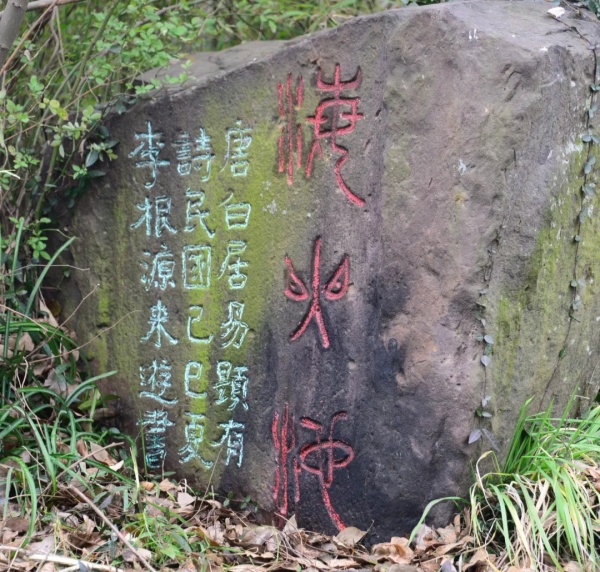 海火池
唐白居易題有
詩民國己巳夏
李根源来遊書